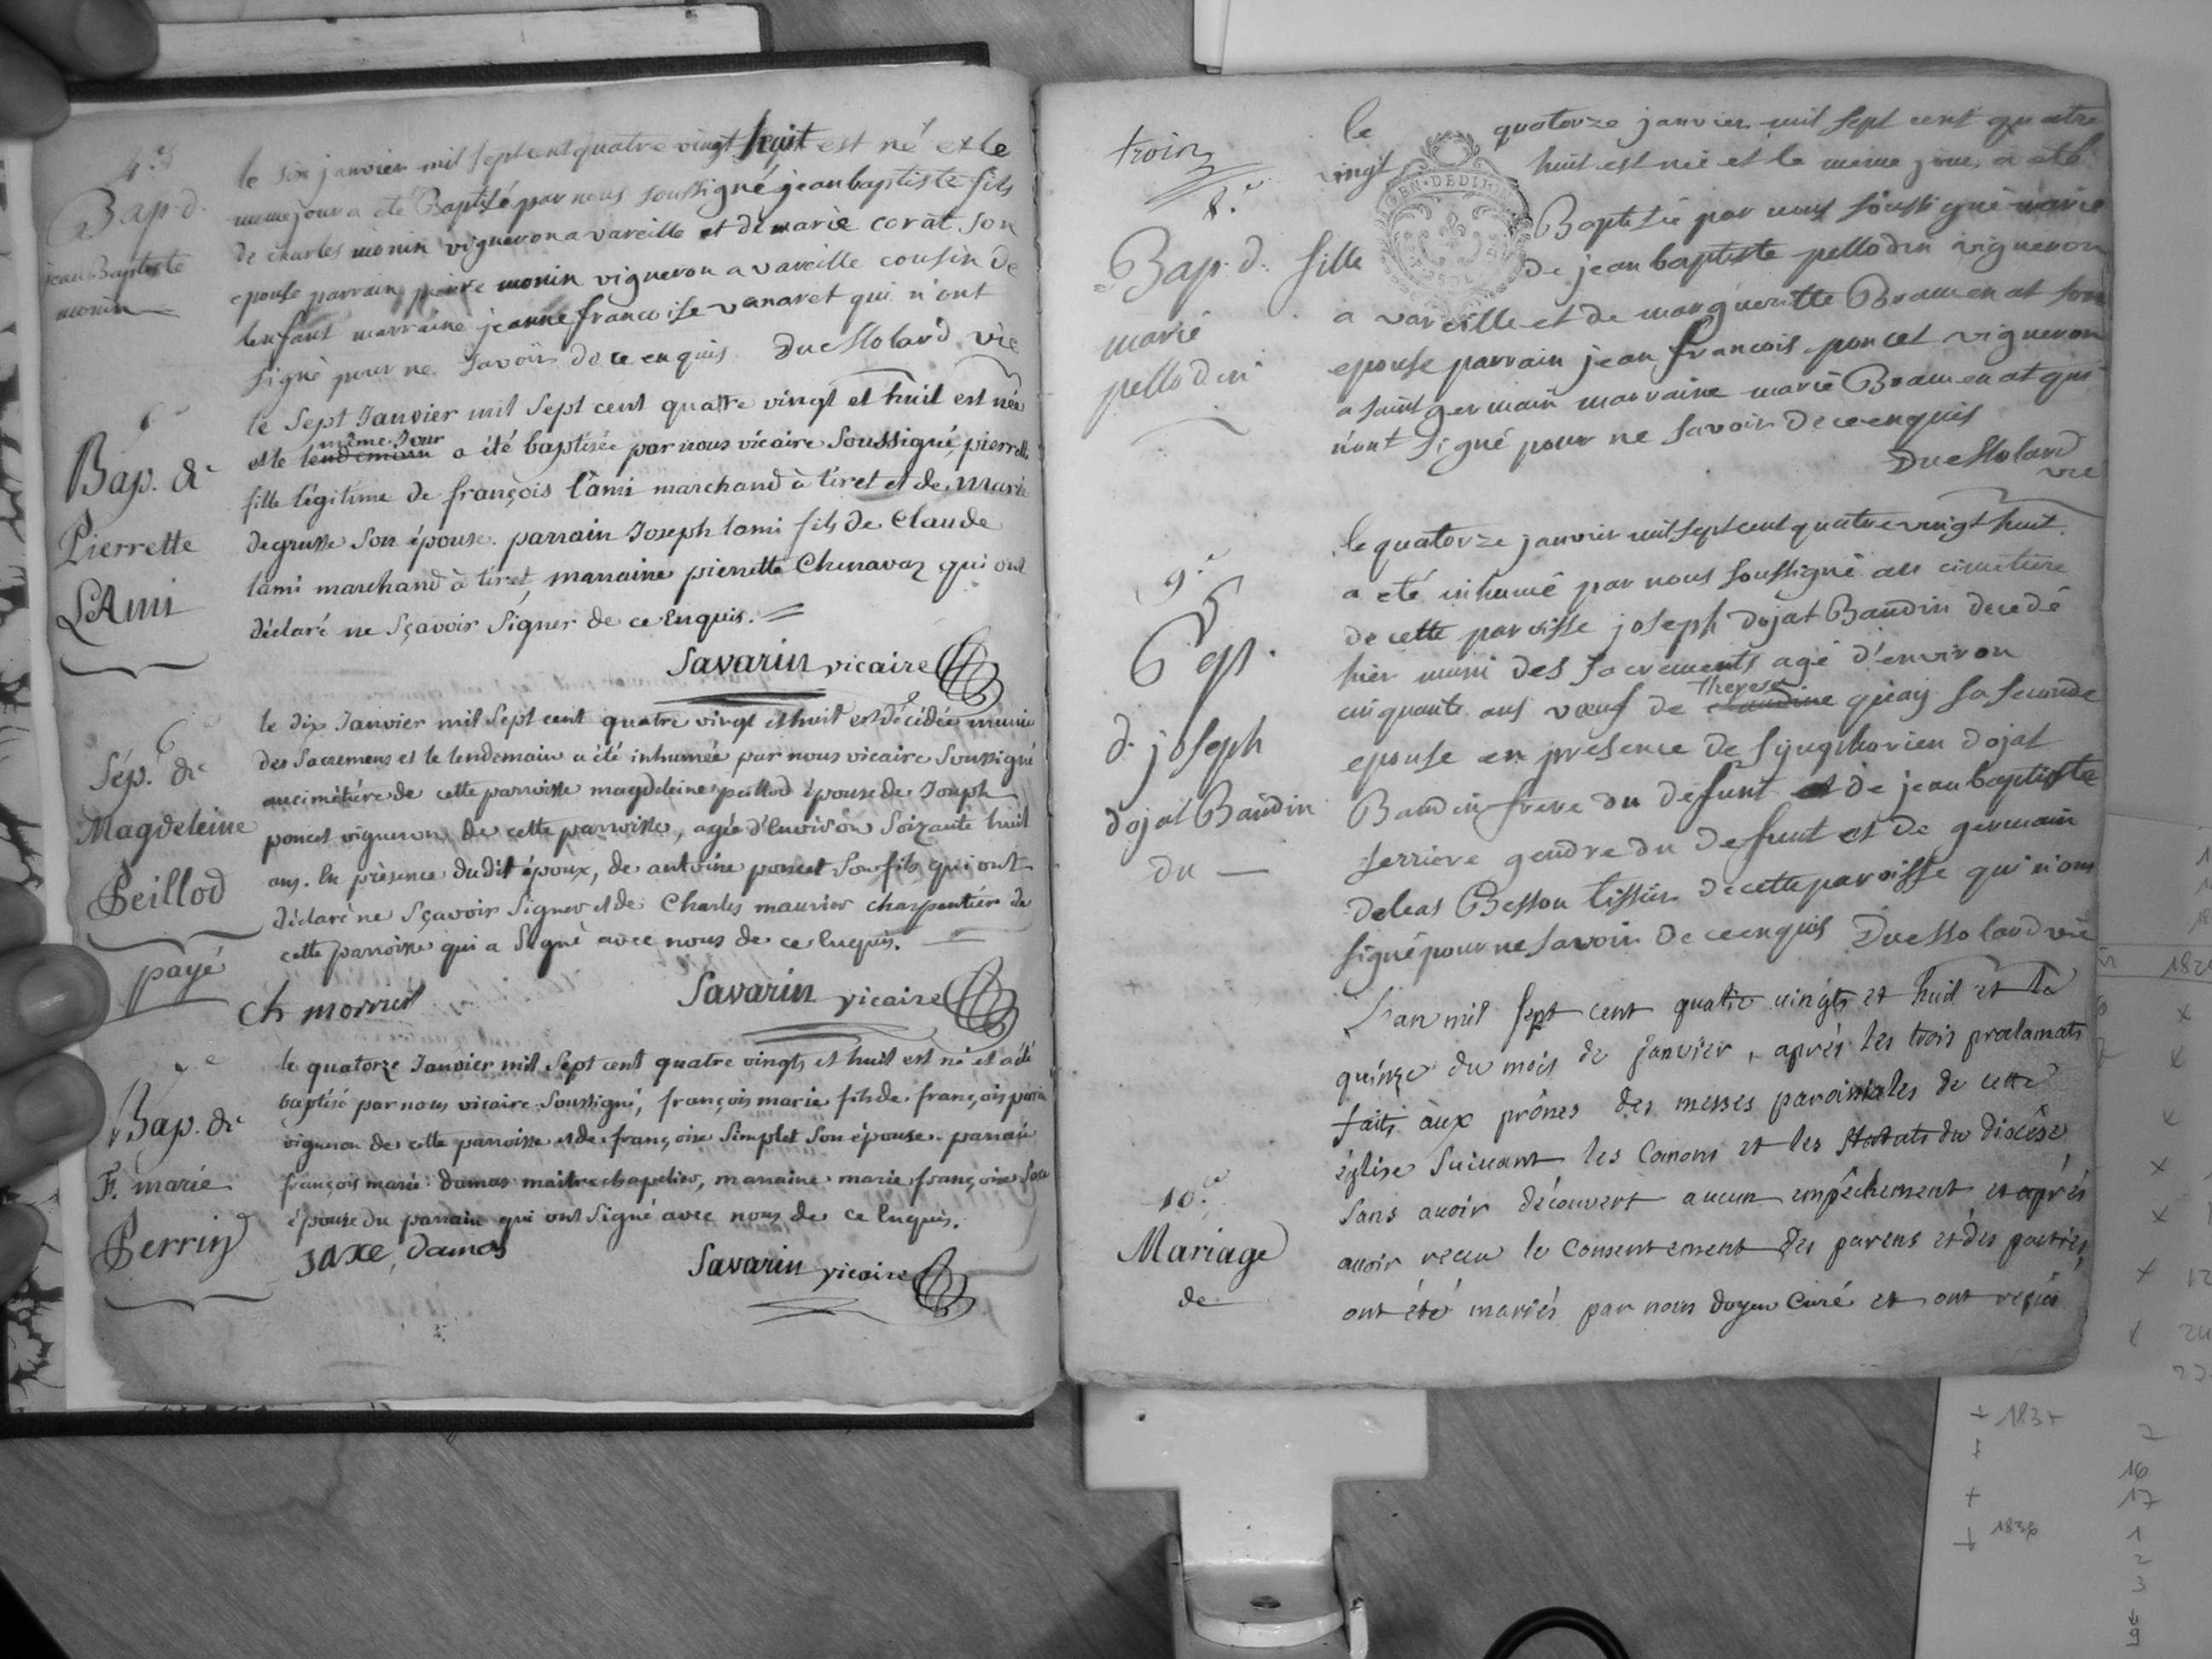 4.e
Bap. d.
jean Baptiste
monin
le six janvier mil sept cent quatre vingt huit est né et le
meme jour a été Baptisé par nous soussigné jean baptiste fils
de charles monin vigneron a vareille et de marie corat son
epouse parrain pierre monin vigneron a vareille cousin de
lenfant marraine jeanne francoise vanaret qui n'ont
signé pour ne savoir de ce enquis Duchollard vic
Bap. de
Pierrette
LAmi
le sept Janvier mil sept cent quatre vingt et huit est née
même Jour
et le lendemain a été baptisée par nous vicaire soussigné, pierrette
fille légitime de françois l'ami marchand à tiret et de Marie
degrusse son épouse. parrain Joseph lami fils de Claude
lami marchand à tiret, marraine pierrette Chenavaz qui ont
déclaré ne sçavoir signer de ce Enquis.
Savarin vicaire
6
Sép. de
Magdeleine
Peillod
payé
le dix Janvier mil sept cent quatre vingt et huit est décédée munie
des Sacremens et le lendemain a été inhumée par nous vicaire soussigné
au cimétière de cette parroisse magdeleine peillod épouse de Joseph
poncet vigneron de cette parroisse, agée d'environ soixante huit
ans. En présence dudit époux, de antoine poncet son fils qui ont
déclaré ne sçavoir signer et de Charles maurier charpentier de
cette parroisse qui a signé avec nous de ce Enquis.
Ch morrier
Savarin vicaire
7e
Bap. de
F. marie
Perrin
le quatorze Janvier mil sept cent quatre vingts et huit est né et a été
baptisé par nous vicaire soussigné, françois marie fils de françois perrin
vigneron de cette parroisse et de françoise simplet son épouse. parrain
françois marie damas maitre chapelier, marraine marie françoise
épouse du parrain qui ont signé avec nous de ce Enquis.
jaxe damas
Savarin vicaire
trois
8.e
Bap. d.
marie
pellodin
le quatorze janvier mil sept cent quatre
vingt huit est née et le meme jour a eté
Baptisée par nous soussigné marie
fille de jean baptiste pellodin vigneron
a vareille et de marguerite Bramenat son
epouse parrain jean francois poncet vigneron
a saint germain marraine marie Bramenat qui
n'ont signé pour ne savoir de ce enquis
Duchollard
vic
9.e
Sep.
d. joseph
dojat Baudin
du
le quatorze janvier mil sept cent quatre vingt huit
a eté inhumé par nous soussigné au cimetiere
de cette paroisse joseph dojat Baudin decedé
hier muni des sacrements agé d'environ
Therese
cinquante ans vœuf de claudine quay sa seconde
epouse en presence de symphorien dojat
Baudin frere du defunt et de jean baptiste
ferriere gendre du defunt et de germain
deleas Besson tissier de cette paroisse qui n'ont
signé pour ne savoir de ce enquis Duchollard vic
10.e
Mariage
de
L'an mil sept cent quatre vingts et huit et le
quinze du mois de janvier, après les trois proclamats
faits aux prônes des messes paroissiales de cette
église suivant les Canons et les Statuts du diocèse
sans avoir découvert aucun empêchement et après
avoir receu le consentement des parens et des parties,
ont été mariés par nous doyen Curé et ont reçus
1837
1836
16
17
1
2
3